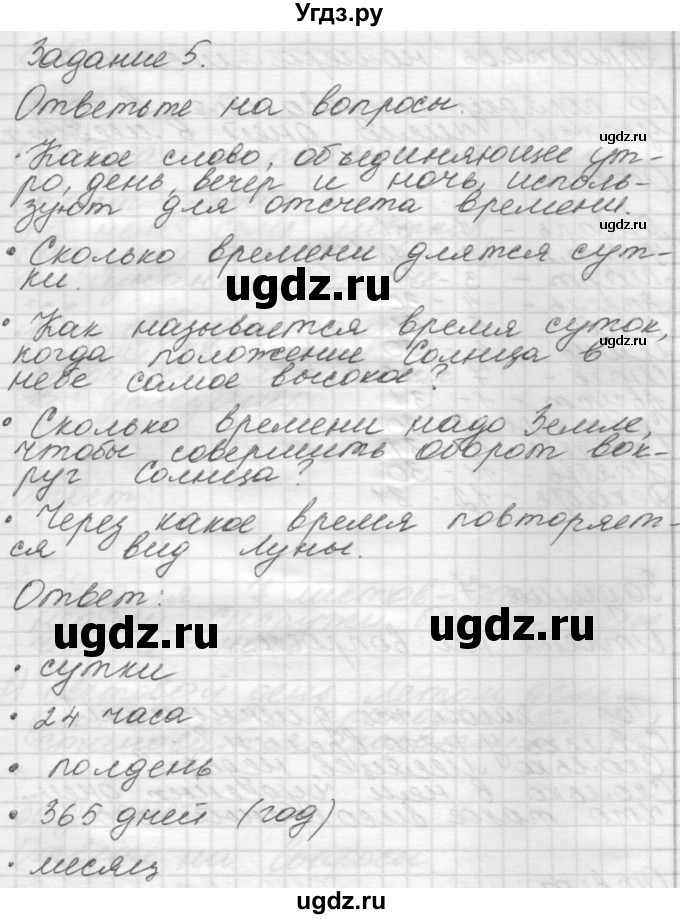 Угдз.ру
Задание 5.
Ответьте на вопросы.
ugdz.ru
• Какое слово, объединяющее ут-
ро, день, вечер и ночь, исполь-
зуют для отсчета времени.
ugdz.ru
• Сколько времени длятся сут-
ки.
ugdz.ru
• Как называется время суток,
ugdz.ru
когда положение Солнца в
небе самое высокое?
• Сколько времени надо Земле,
чтобы совершить оборот вок-
руг Солнца?
• Через какое время повторяет-
ся вид Луны.
Ответ:
ugdz.ru
ugdz.ru
• сутки
• 24 часа
• полдень
• 365 дней (год)
• месяц
ugdz.ru